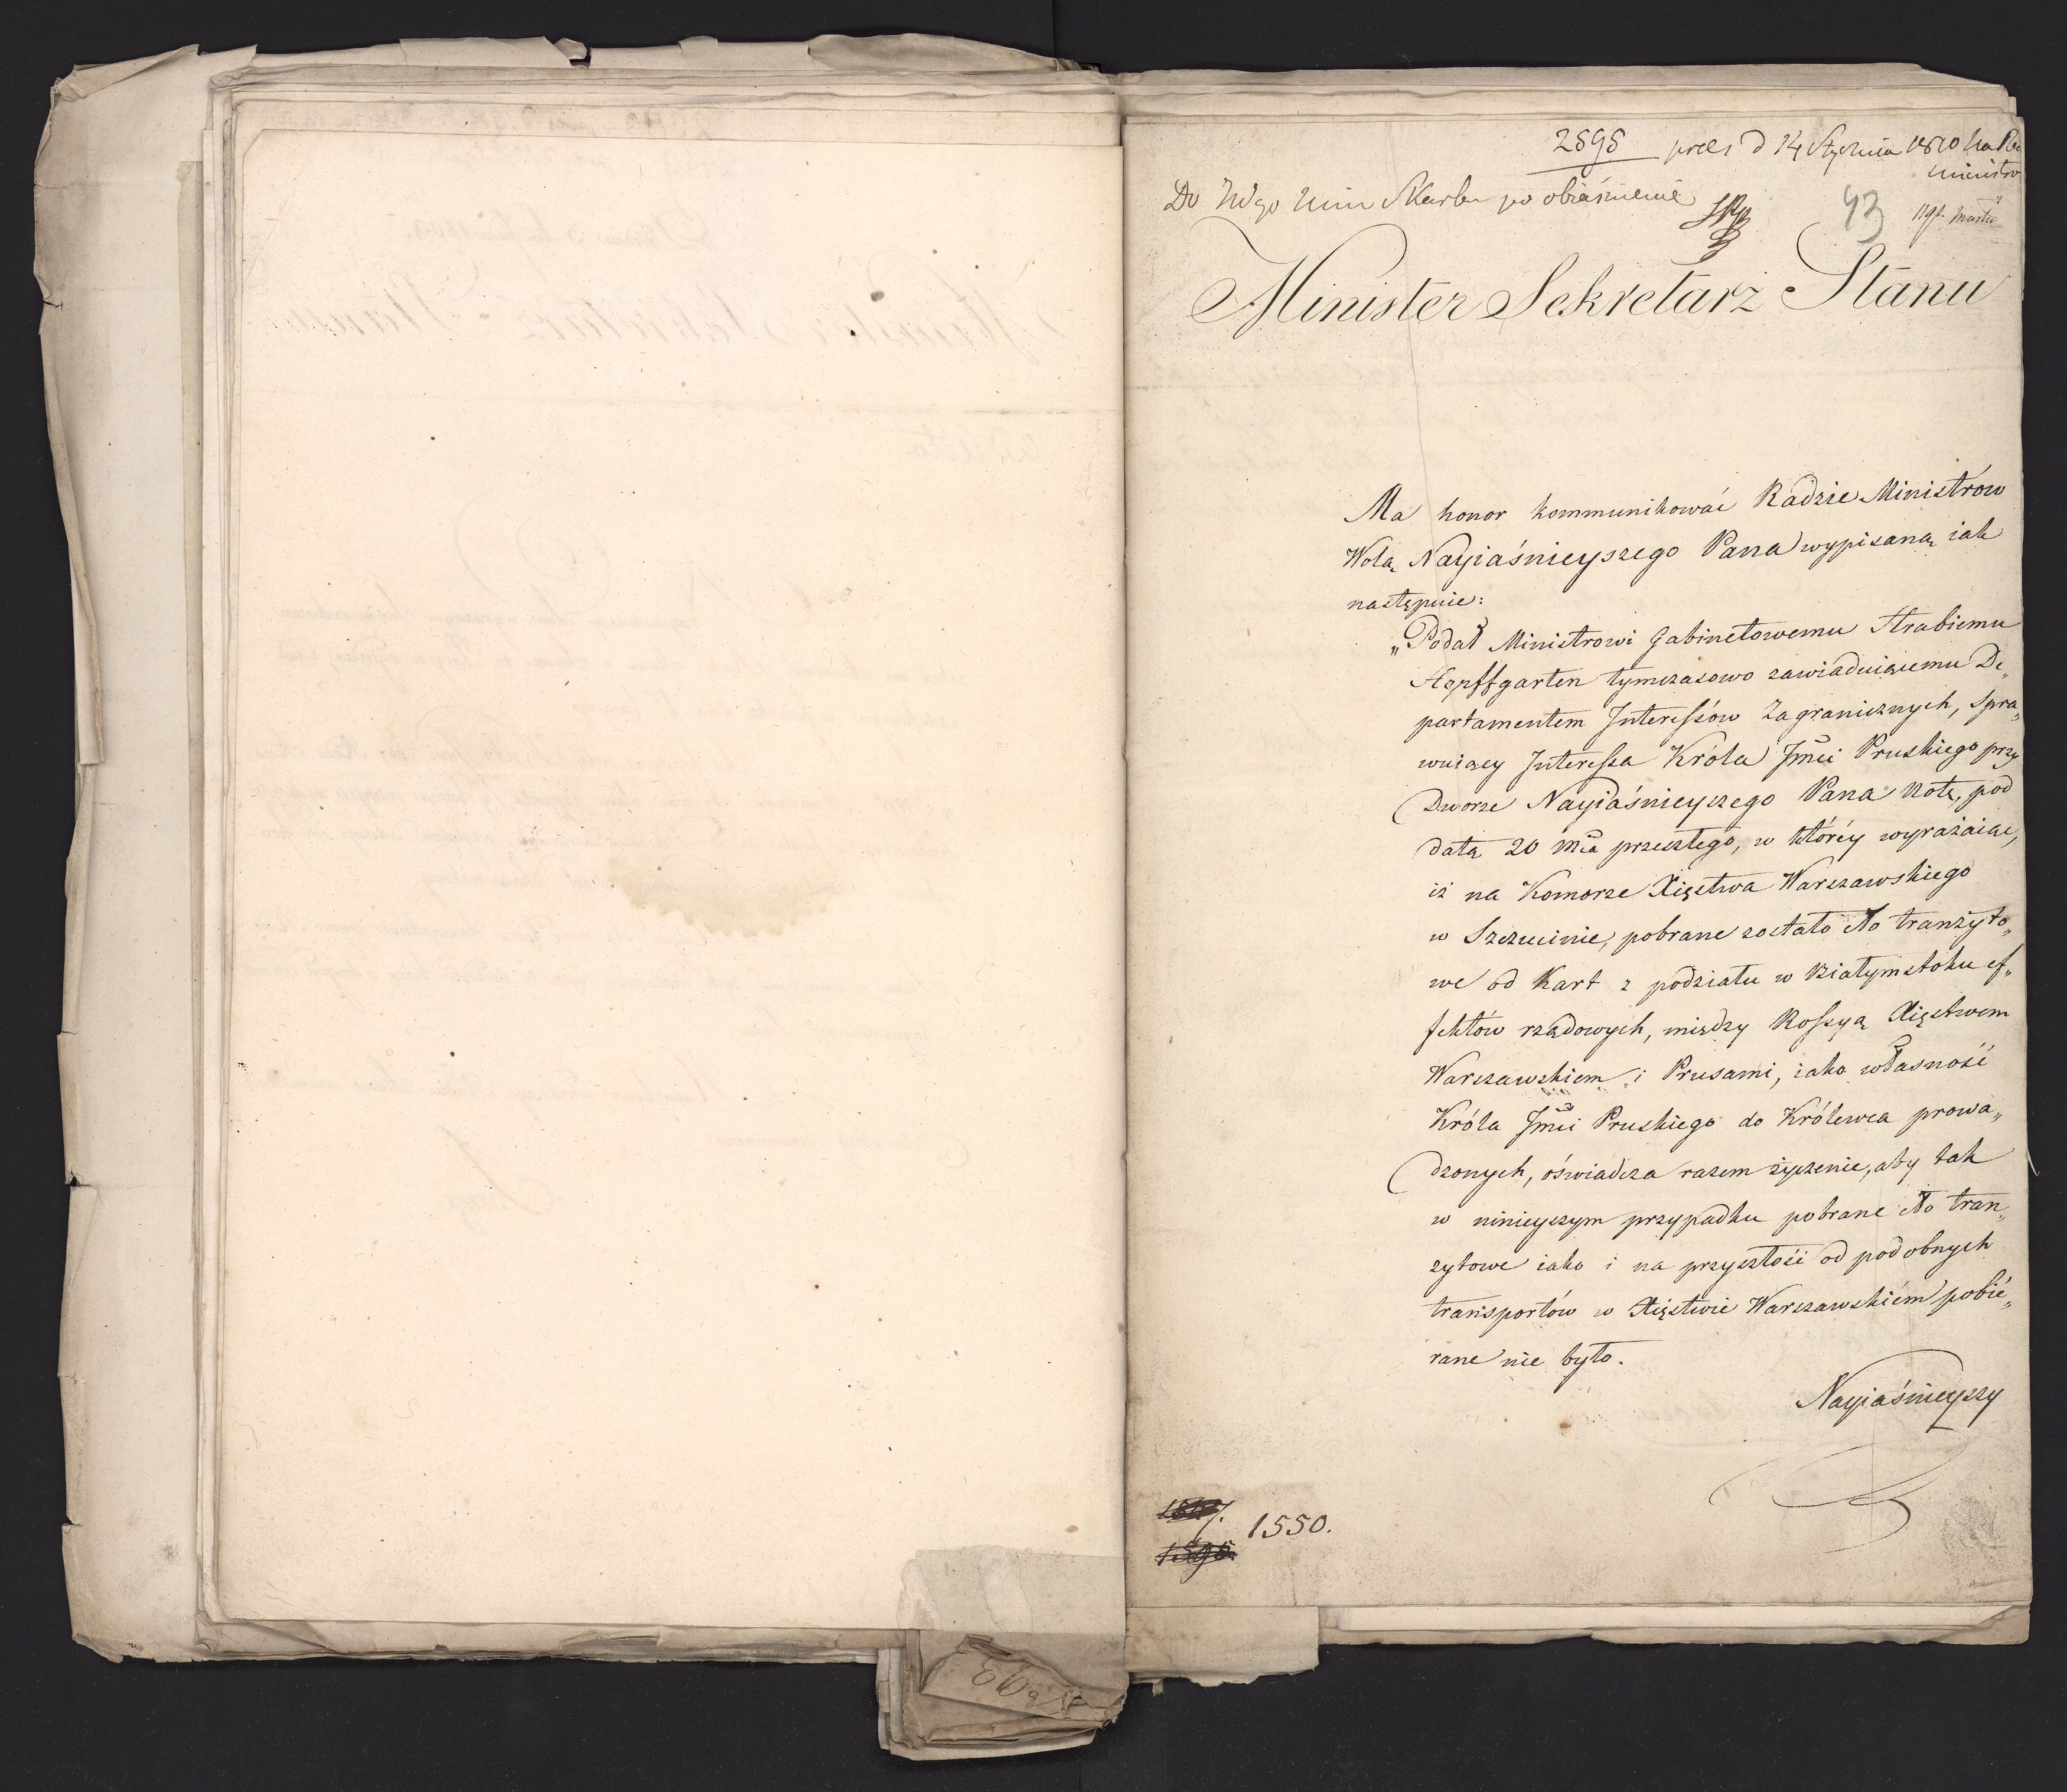 2595 præs d 14 Stycznia 1810 na Ra
Ministro
Do JWgo Min Skarbu po obiaśnienie
43
Minister Sekretarz Stanu
Ma honor kommunikować Radzie Ministrów
Wolą Nayiaśnieyszego Pana wypisaną iak
następuie:
„Podał Ministrowi Gabinetowemu Hrabiemu
Hopffgarten tymczasowo zawiaduiącemu De„
partamentem Interessów Zagranicznych, spra„
wuiący Interessa Króla Jmci Pruskiego przy
Dworze Nayiaśnieyszego Pana notę, pod
datą 20 mca przeszłego, w któréy wyrażaiąc,
iż na Komorze Xięstwa Warszawskiego
w Szczucinie, pobrane zostało cło tranzyto„
we od Kart z podziału w Białymstoku ef„
fektów rządowych, między Rossyą Xięstwem
Warszawskiem i Prusami, iako własność
Króla Jmci Pruskiego do Królewca prowa„
dzonych, oświadcza razem życzenie, aby tak
w ninieyszym przypadku pobrane cło tran„
zytowe iako i na przyszłość od podobnych
transportów w Xięstwie Warszawskiém pobié„
rane nie było.
Nayiaśnieyszy
1550.